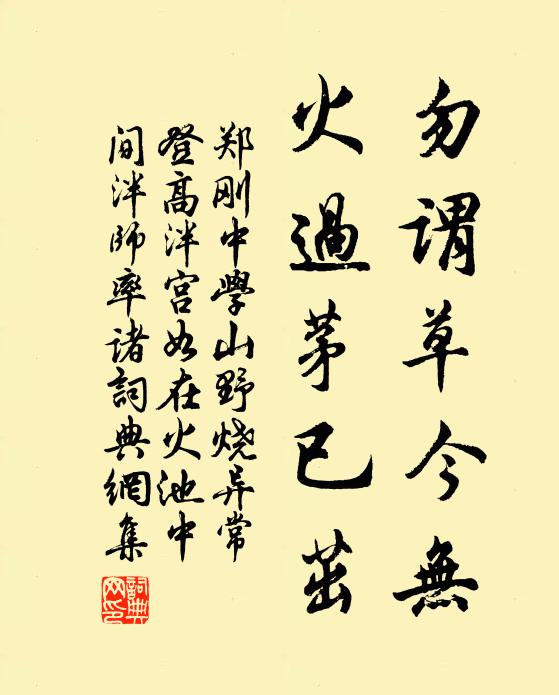 勿謂草今無
火過茅已茁
郑刚中學山野烧异常
登高泮宮如在火池中
间泮師率诸詞典網集
詞典網印